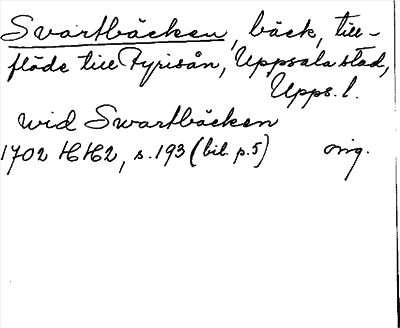 Svartbäcken, bäck, till-
flöde till Fyrisån, Uppsala stad,
Upps. l.
wid Swartbäcken
1702 HH2, s. 193 (bil. p. 5) orig.